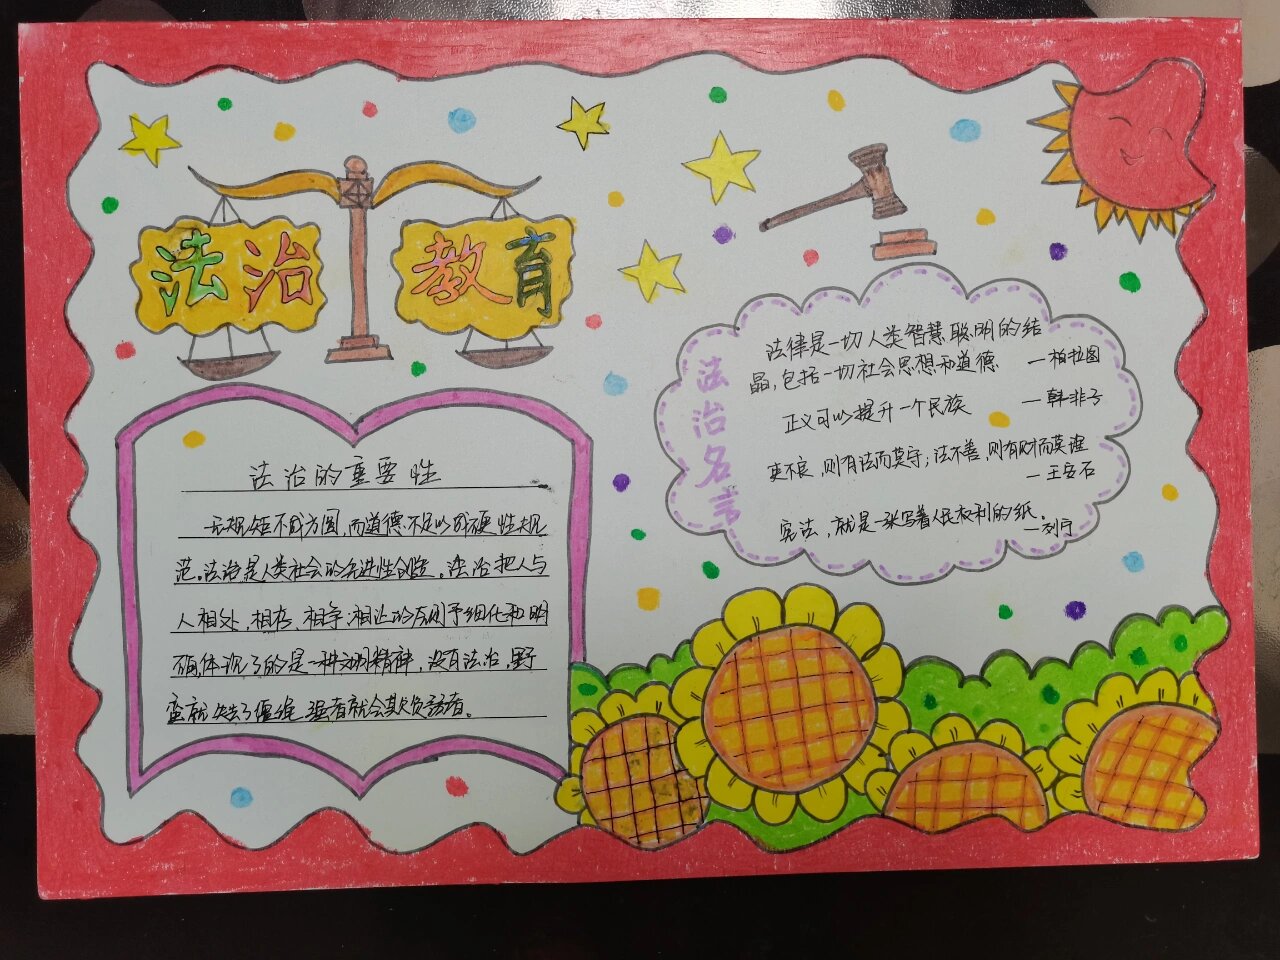 法治 教育
法治的重要性
无规矩不成方圆,而道德不足以成硬性规
范。法治是人类社会的先进性创造。法治把人与
人相处、相存、相争、相让的原则予细化和明
确,体现了的是一种文明精神,没有法治,野
蛮就失去了缰绳、强者就会欺负弱者。
法治名言
法律是一切人类智慧聪明的结
晶,包括一切社会思想和道德 —柏拉图
正义可以提升一个民族 —韩非子
吏不良,则有法而莫守;法不善,则有财而莫理
—王安石
宪法,就是一张写着人民权利的纸。
—列宁